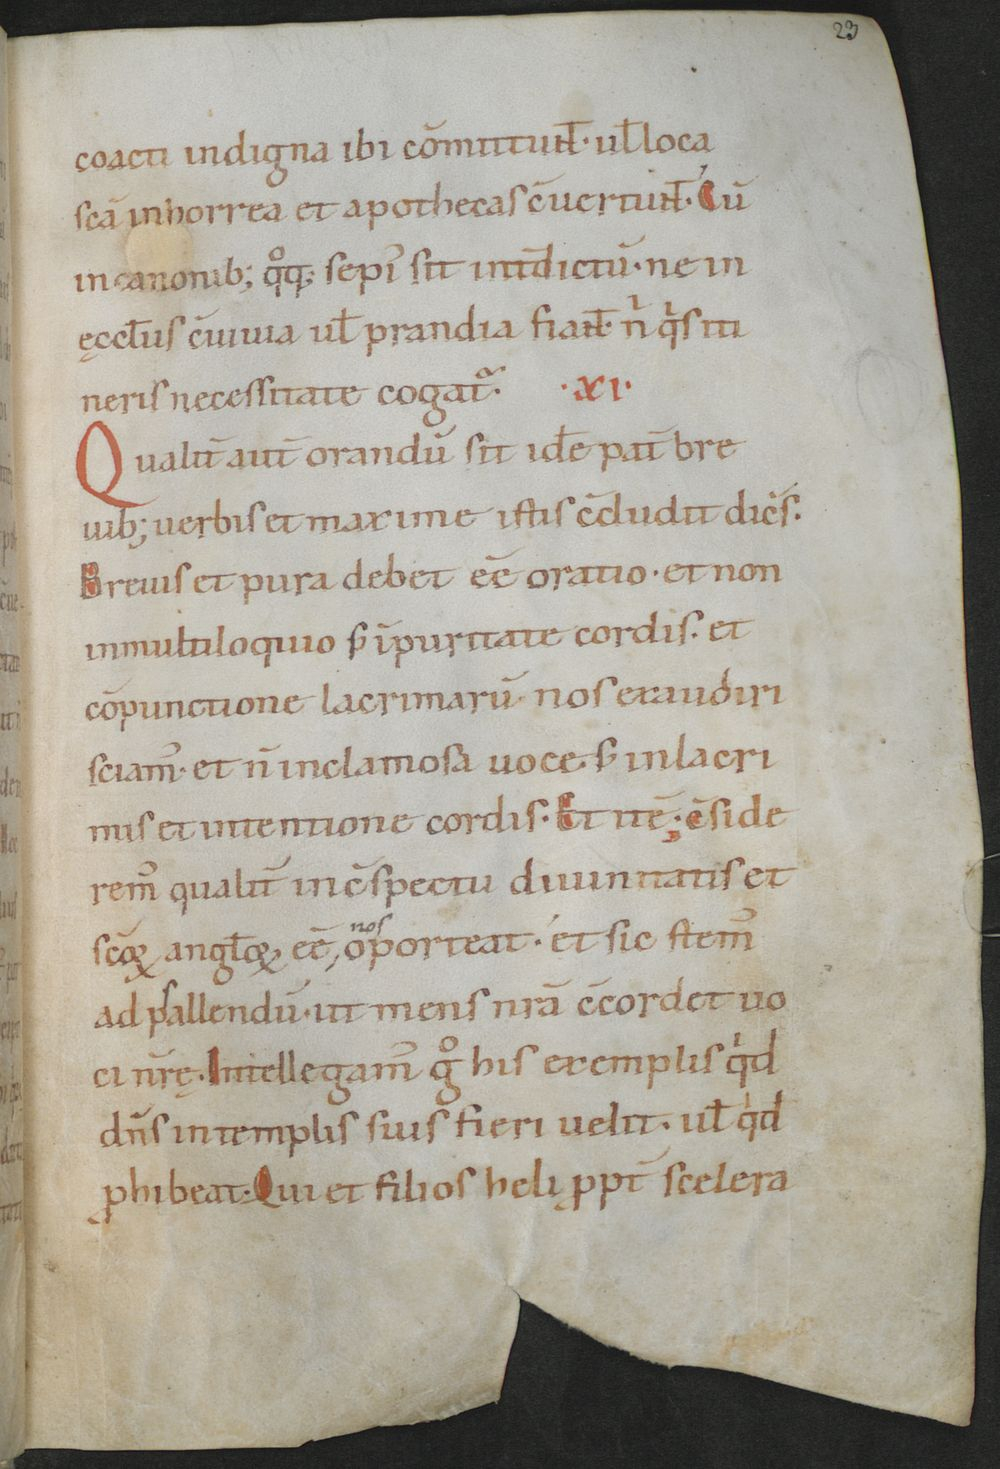 23
coacti indigna ibi cōmittunt̄· ul̄ loca
scā in horrea et apothecas c̄uertunt̄· Cū
in canonib; qͦq; sepi᷒ sit int̄dictū· ne in
ęccl̄iis c̄uiuia ul̄ prandia fiant̄· nͥ qͥs iti
neris necessitate cogat᷑·
·XI·
Qualit̄ aut̄ orandū sit id̄e pat̄ bre
uib; uerbis et maxime istis c̄cludit dic̄s·
Breuis et pura debet ēē oratio· et non
in multiloquio s̄ ī puritate cordis· et
cōpunctione lacrimarū nos exaudiri
sciam᷒· et n̄ in clamosa uoce· s̄ in lacri
mis et intentione cordis· Et itē; c̄side
rem᷒ qualit̄ in c̄spectu diuinitatis et
scōꝝ angl̄oꝝ ēē, nos oporteat· et sic stem᷒
ad psallendū· ut mens nr̄a c̄cordet uo
ci nr̄ę· Intellegam᷒ gͦ his exemplis qͥd
dn̄s in templis suis fieri uelit· ul̄ qͥd
ꝓhibeat· Qui et filios heli ꝓpt̄ scelera